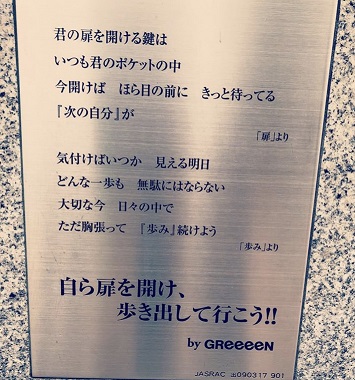 君の扉を開ける鍵は
いつも君のポケットの中
今開けば　ほら目の前に　きっと待ってる
『次の自分』が
「扉」より
気付けばいつか　見える明日
どんな一歩も　無駄にはならない
大切な今　日々の中で
ただ胸張って　『歩み』続けよう
「歩み」より
自ら扉を開け、
歩き出して行こう!!
by GReeeeN
JASRAC 出090317 901